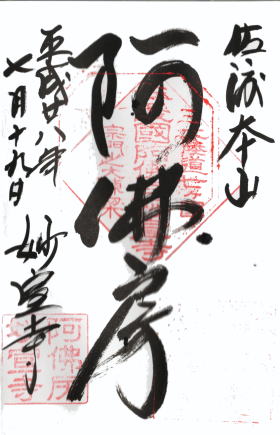 佐渡本山
阿佛房
平成廿八年
七月十九日
妙宣寺
阿佛房
妙宣寺